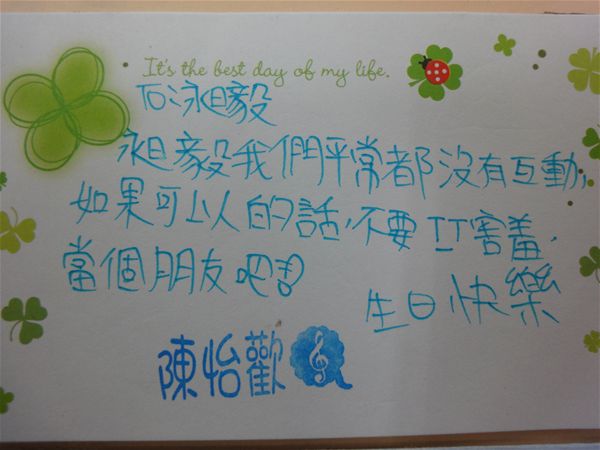 It's the best day of my life.
To:昶毅
昶毅我們平常都沒有互動,
如果可以的話,不要害羞,
當個朋友吧!!
生日快樂
陳怡歡